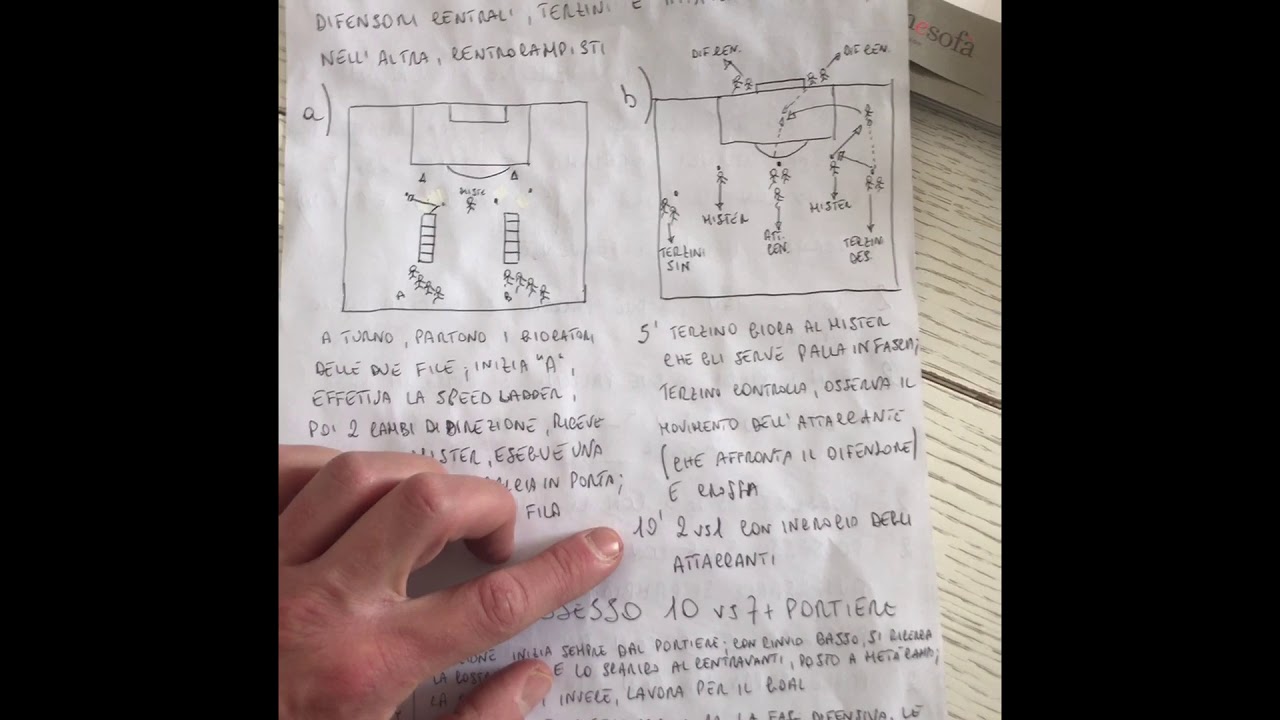 DIFENSORI CENTRALI, TERZINI E
NELL'ALTRA, CENTROCAMPISTI
nesofà
a)
MISTER
A
B
A TURNO, PARTONO I GIOCATORI
DELLE DUE FILE; INIZIA "A",
EFFETTUA LA SPEED LADDER,
POI 2 CAMBI DI DIREZIONE, RICEVE
MISTER, ESEGUE UNA
IN PORTA;
FILA
b)
DIF. CEN.
DIF. CEN.
MISTER
MISTER
TERZINI
SIN
ATT.
CEN.
TERZINI
DES.
5' TERZINO GIOCA AL MISTER
CHE GLI SERVE PALLA IN FASCIA;
TERZINO CONTROLLA, OSSERVA IL
MOVIMENTO DELL'ATTACCANTE
(CHE AFFRONTA IL DIFENSORE)
E CROSSA
10' 2 VS 1 CON INCROCIO DEGLI
ATTACCANTI
10 VS 7 + PORTIERE
INIZIA SEMPRE DAL PORTIERE; CON RINVIO BASSO, SI RICERCA
LA E LO SCARICO AL CENTRAVANTI, POSTO A METÀ CAMPO;
LA INVECE, LAVORA PER IL GOAL
LA FASE DIFENSIVA, LE